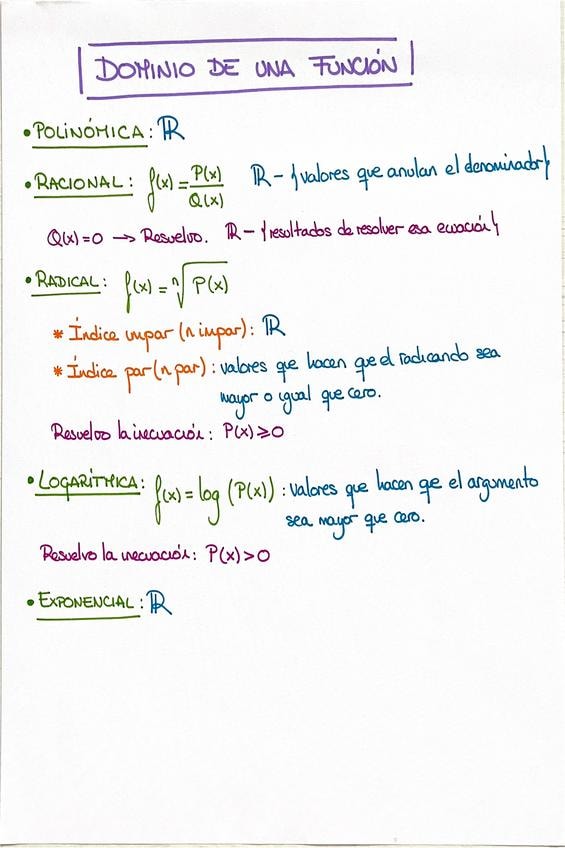 DOMINIO DE UNA FUNCIÓN
• POLINÓMICA: ℝ
• RACIONAL: f(x) = P(x)/Q(x) ℝ - {valores que anulan el denominador}
Q(x)=0 → Resuelvo. ℝ - {resultados de resolver esa ecuación}
• RADICAL: f(x) = ⁿ√P(x)
* Índice impar (n impar): ℝ
* Índice par (n par): valores que hacen que el radicando sea
mayor o igual que cero.
Resuelvo la inecuación: P(x) ≥ 0
• LOGARÍTMICA: f(x) = log (P(x)): valores que hacen qe el argumento
sea mayor que cero.
Resuelvo la inecuación: P(x) > 0
• EXPONENCIAL: ℝ